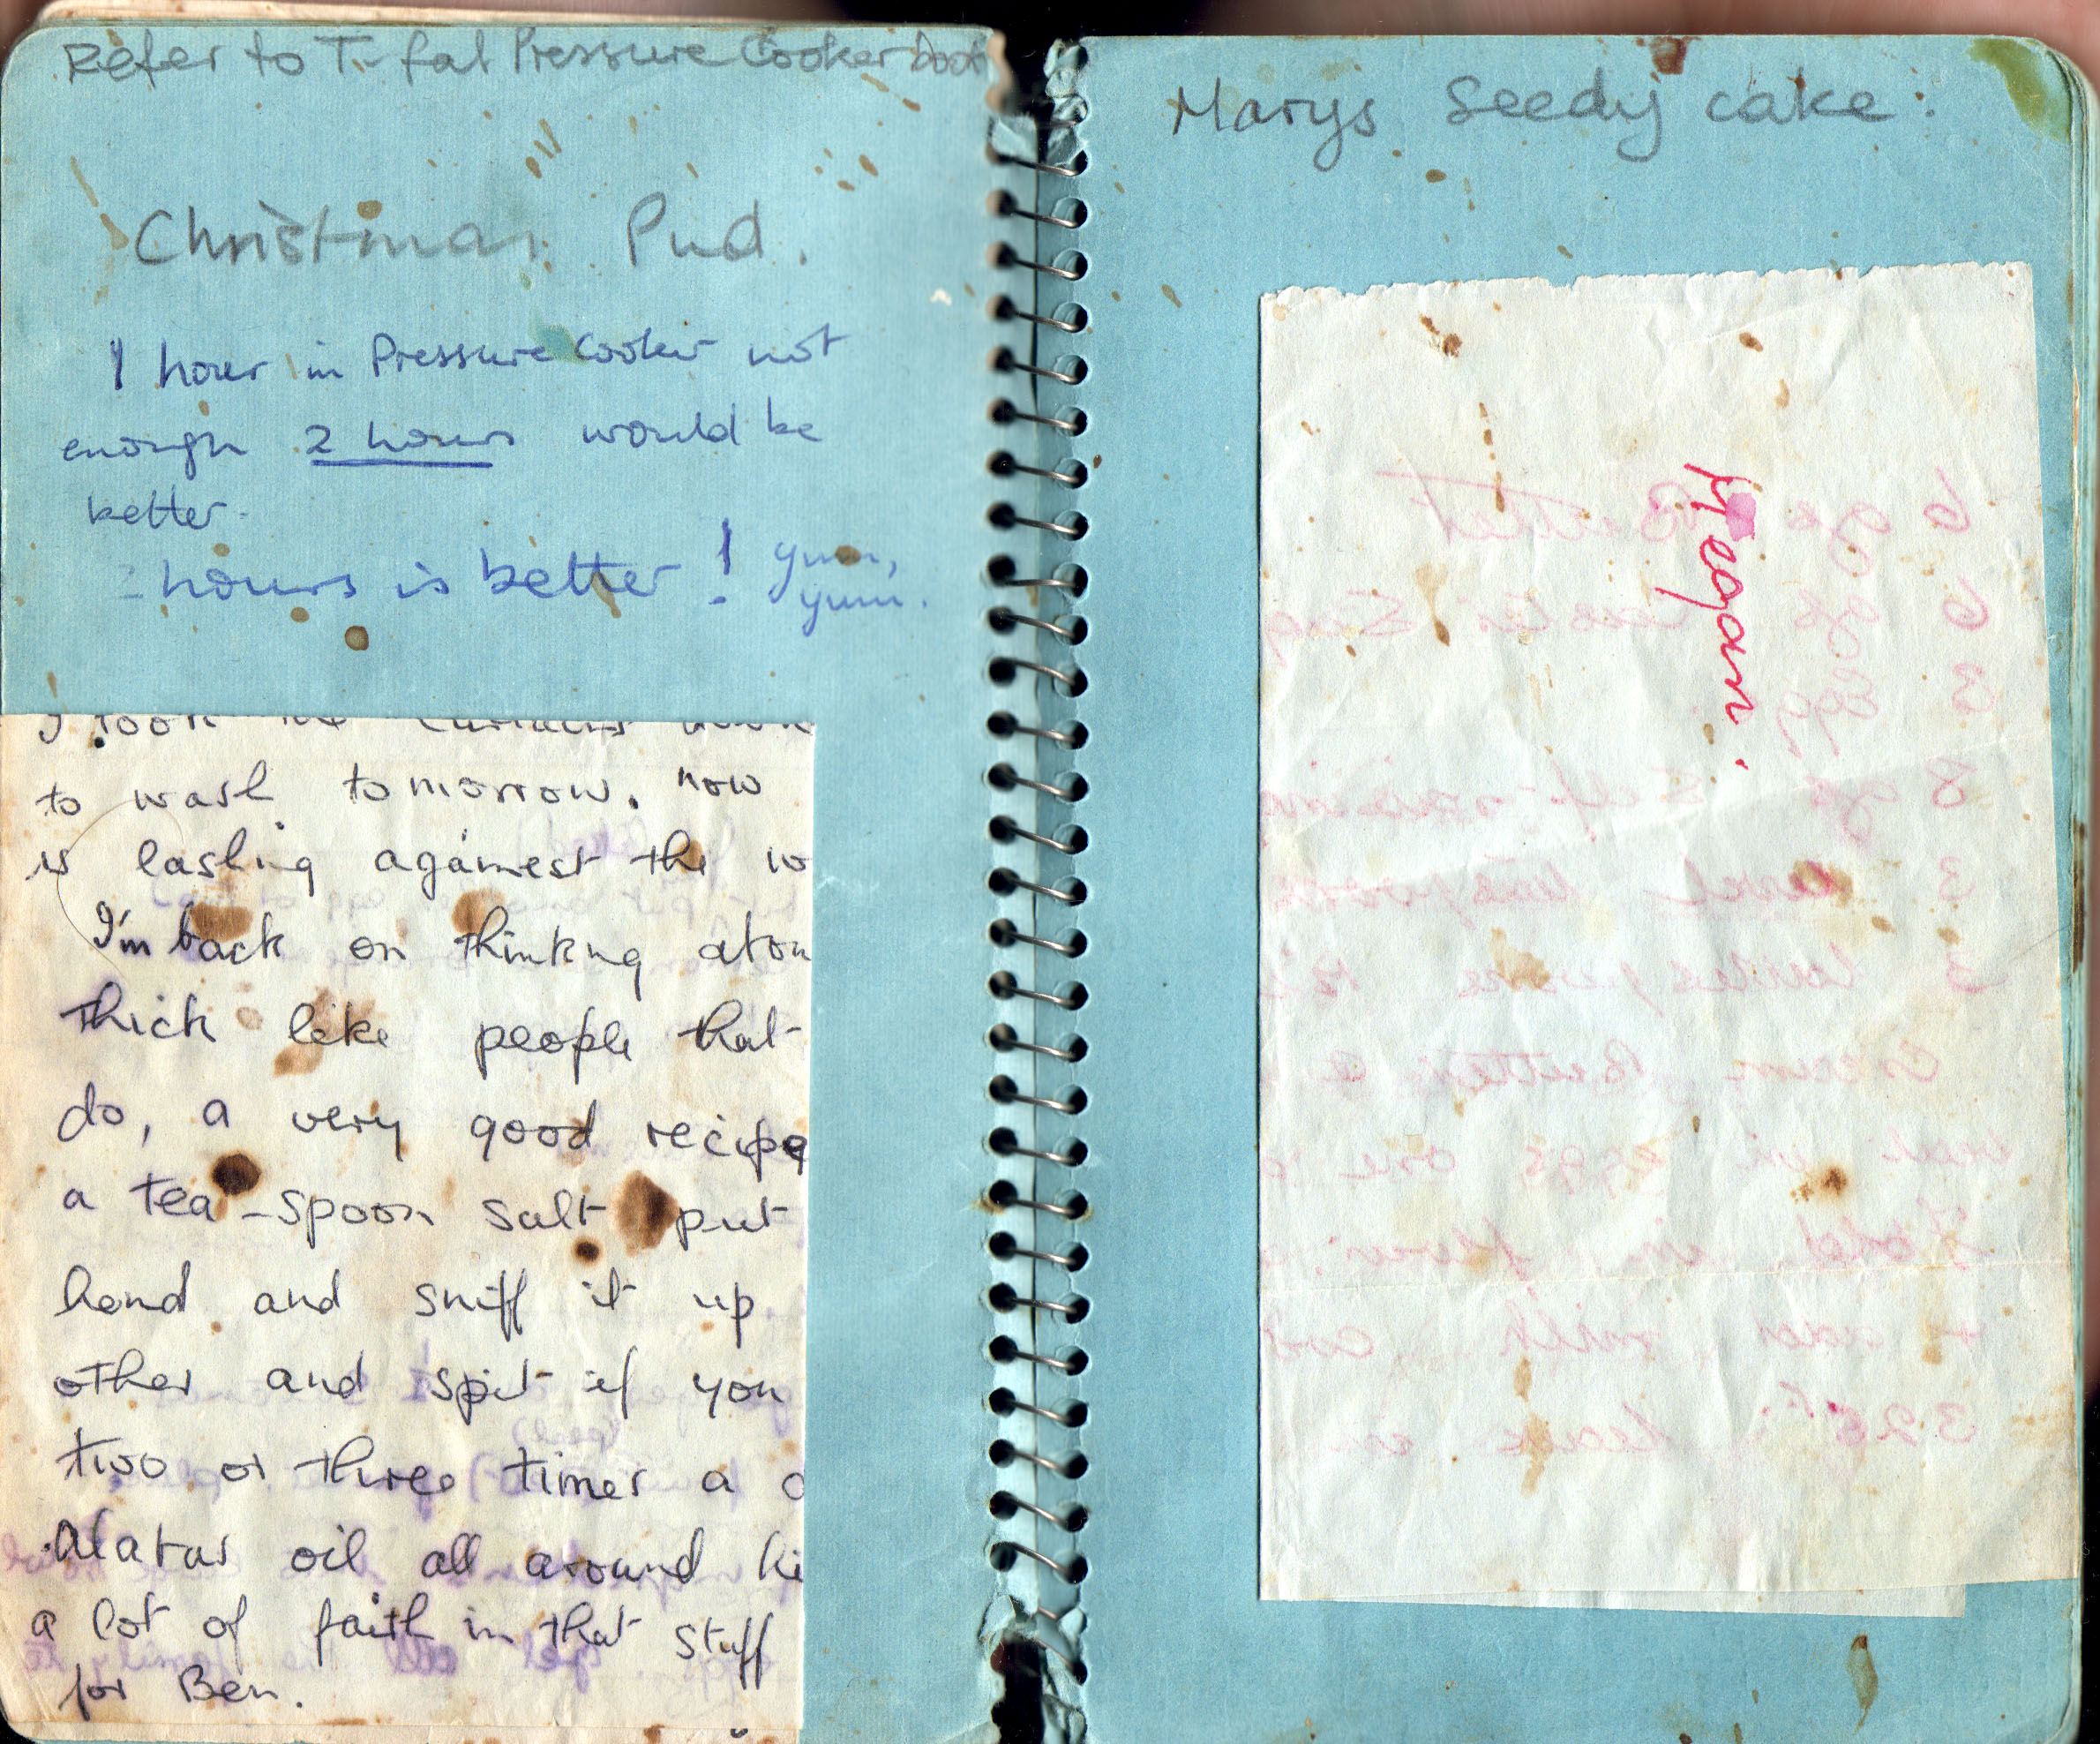 Refer to T-fal Pressure Cooker book
Christmas Pud.
1 hour in Pressure Cooker not
enough 2 hours would be
better.
hours is better! yum,
yum.
to wash tomorrow. now
is lashing againest the w
I'm back on thinking abou
thick like people that
do, a very good recipe
a tea-spoon salt put
hand and sniff it up
other and spit if you
two or three times a d
oil all around
a lot of faith in that stuff
for Ben.
Marys Seedy cake:
Megan.
6 ozs Butter
6 ozs
3 Eggs
8 ozs Self-raising
3 level
3
Cream Butter &
in eggs one
Fold in flour
milk
325°F